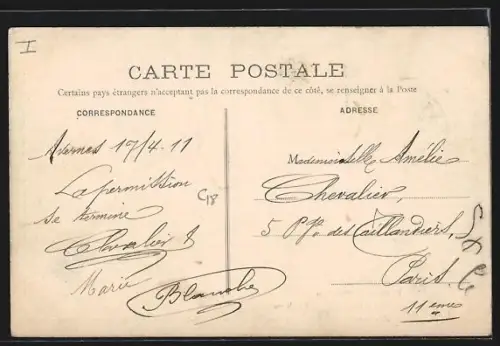 I
CARTE POSTALE
Certains pays étrangers n'acceptant pas la correspondance de ce côté, se renseigner à la Poste
CORRESPONDANCE
Avernes 17/4. 11
La permission
se termine
Chevalier
Marie
Blanche
C18
ADRESSE
Mademoiselle Amélie
Chevalier,
5 des Taillandiers,
Paris.
11eme